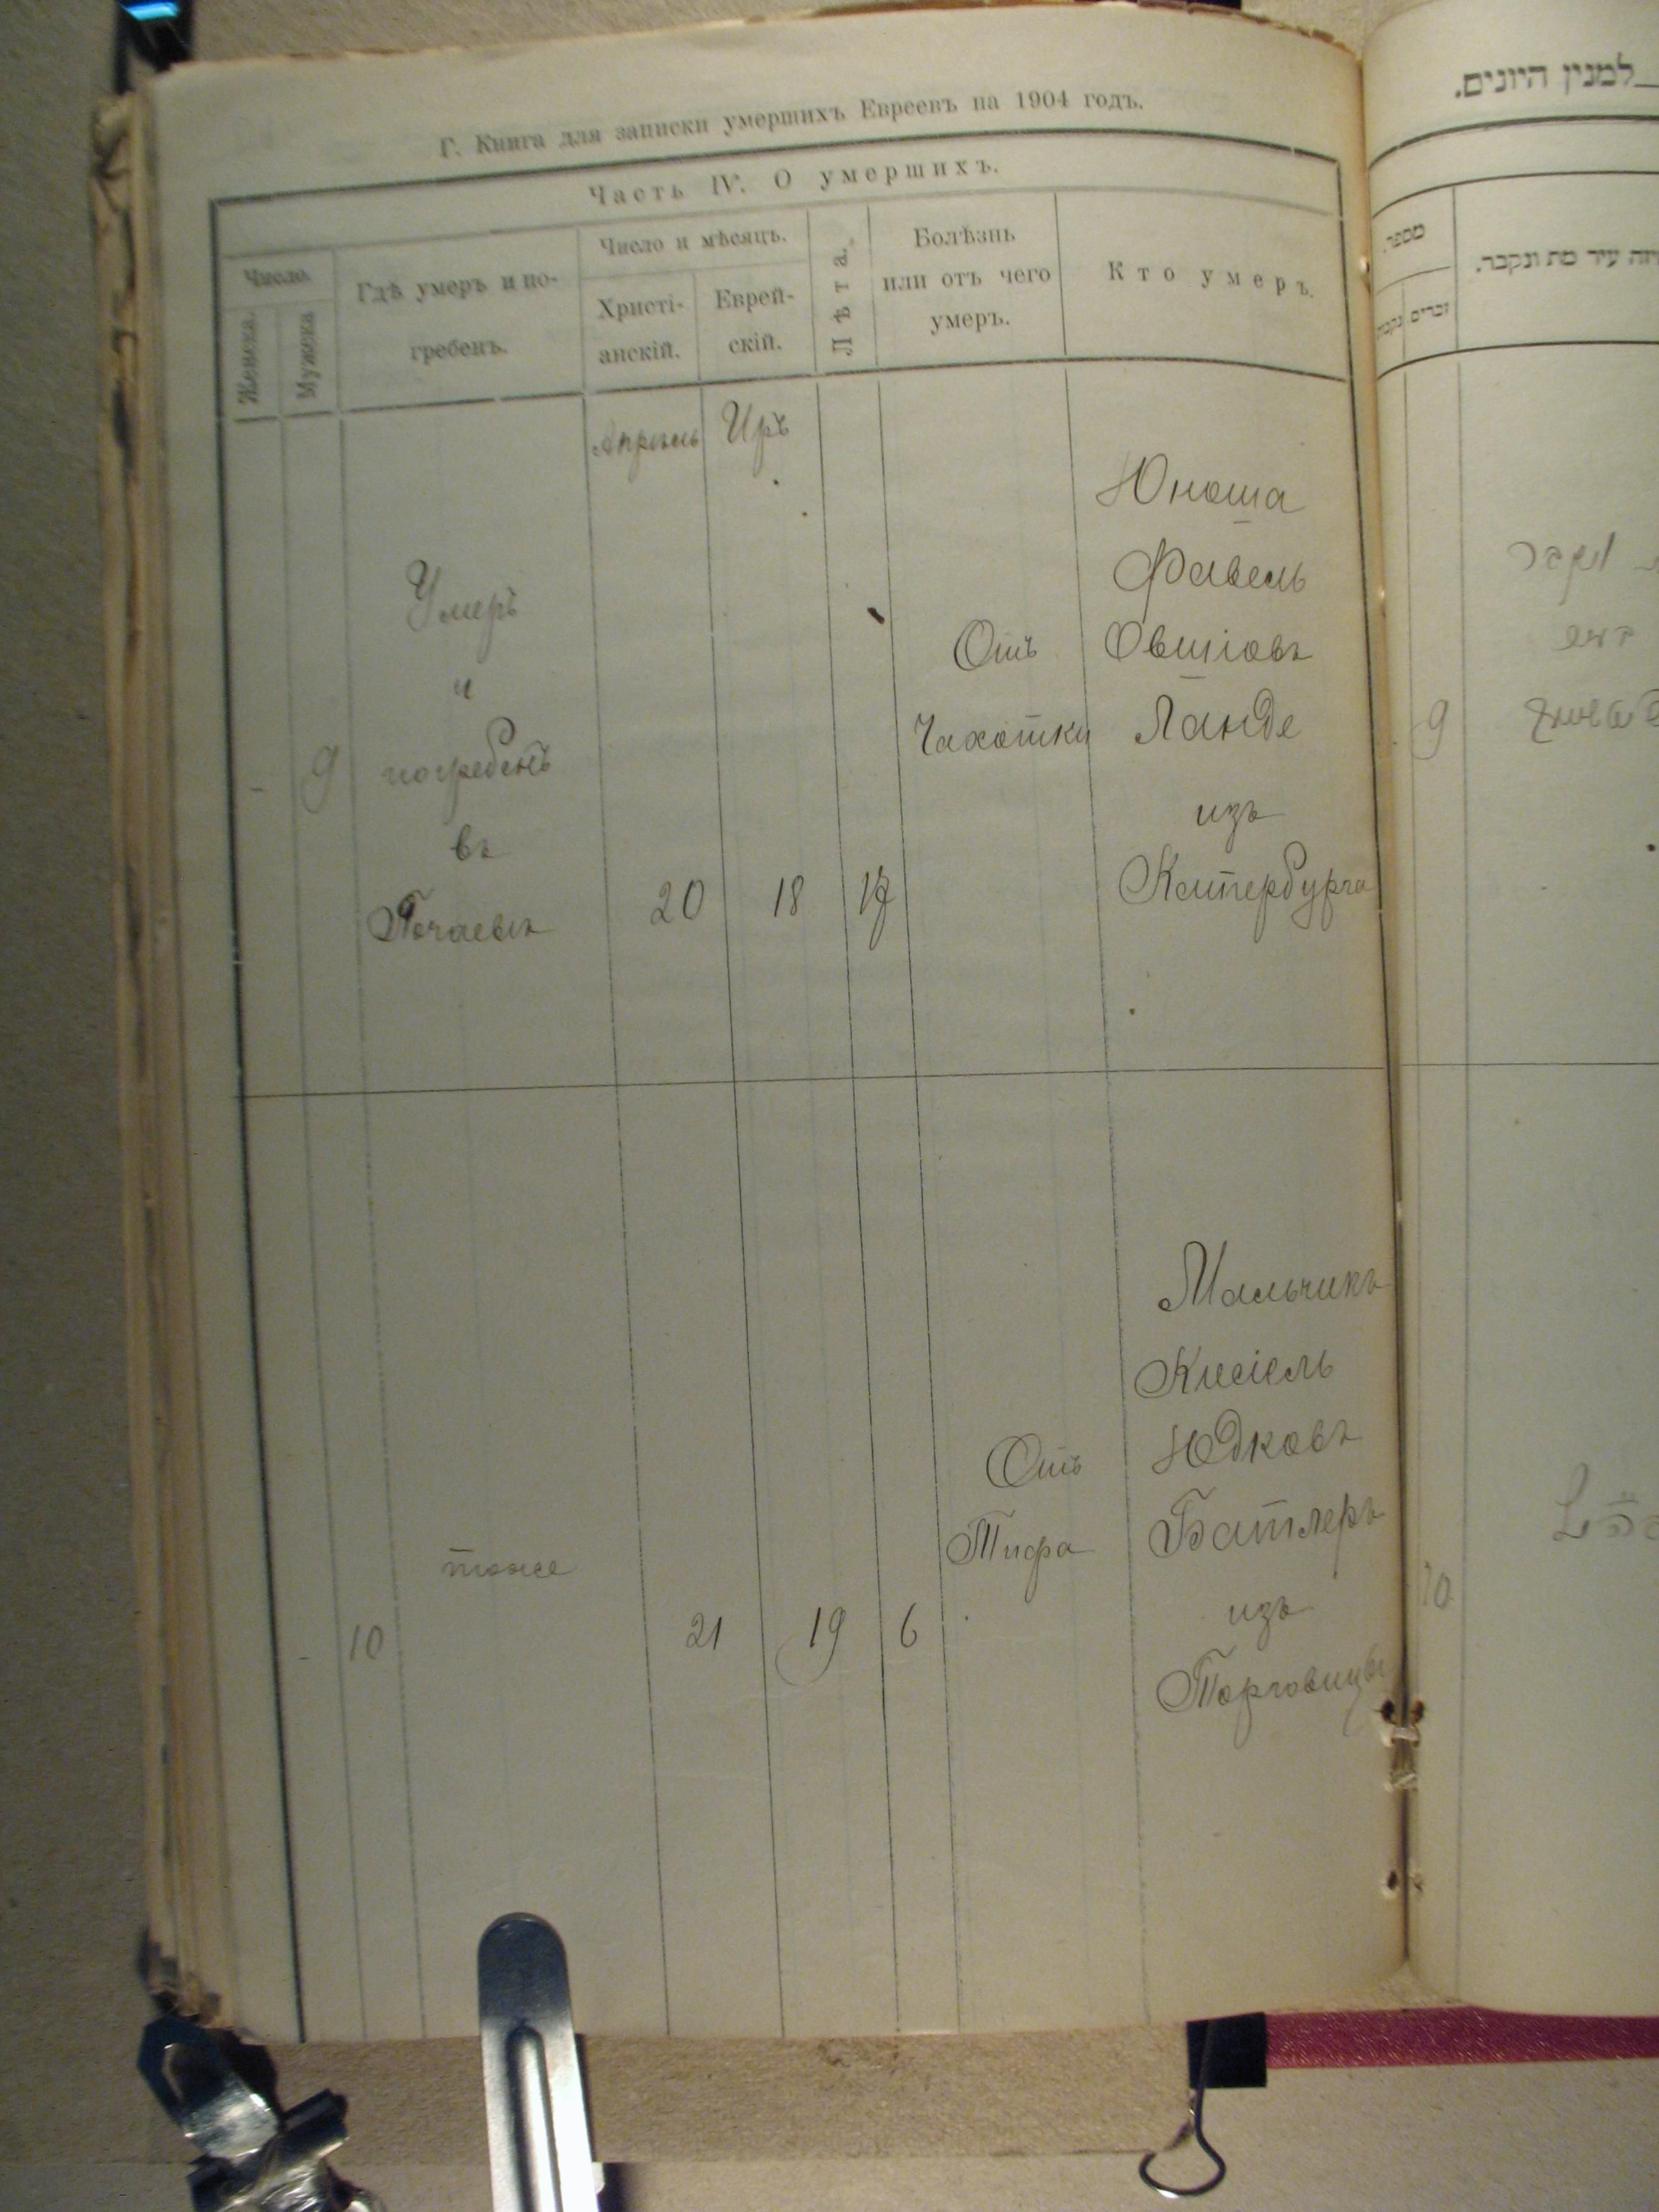 Г. Книга для записки умершихъ Евреевъ на 1904 годъ.
Часть IV. О умершихъ.
Число.
Женска.
Мужска
Гдѣ умеръ и по-
гребенъ.
Число и мѣсяцъ.
Христі-
анскій.
Еврей-
скій.
Лѣта.
Болѣзнь
или отъ чего
умеръ.
Кто умеръ.
Апрѣль Иръ
- 9
Умеръ
и
погребенъ
въ
Почаевѣ
20 18 17
Отъ
Чахотки
Юноша
Фавель
Овшіовъ
Ланде
изъ
Катербурга
- 10
тоже
21 19 6
Отъ
Тифа
Мальчикъ
Кисіель
Юдковъ
Батлеръ
изъ
Торговицы
למנין היונים.
מספר.
זכרים.
עיר מת ונקבר.
9
10